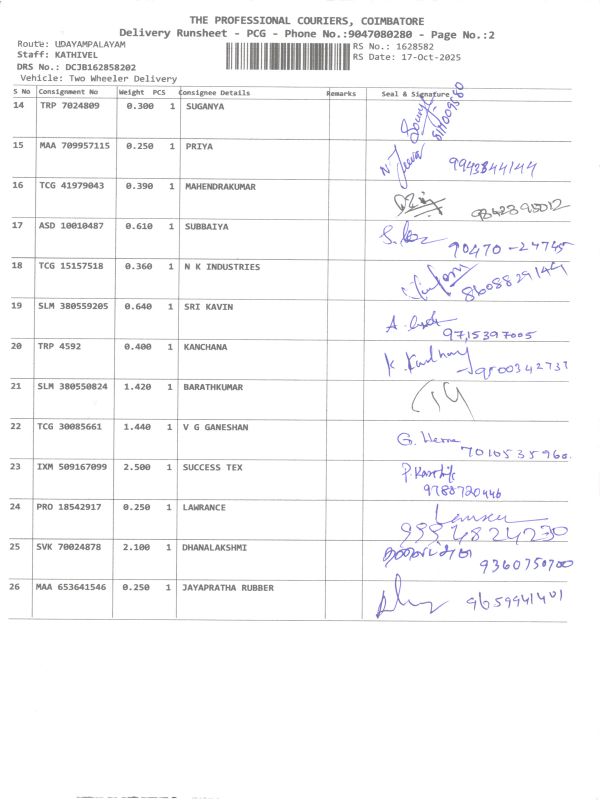 THE PROFESSIONAL COURIERS, COIMBATORE
Delivery Runsheet - PCG - Phone No.:9047080280 - Page No.:2
Route: UDAYAMPALAYAM RS No.: 1628582
Staff: KATHIVEL RS Date: 17-Oct-2025
DRS No.: DCJB162858202
Vehicle: Two Wheeler Delivery
S No Consignment No Weight PCS Consignee Details Remarks Seal & Signature
14 TRP 7024809 0.300 1 SUGANYA
15 MAA 709957115 0.250 1 PRIYA 9943844144
16 TCG 41979043 0.390 1 MAHENDRAKUMAR
17 ASD 10010487 0.610 1 SUBBAIYA 90470-24745
18 TCG 15157518 0.360 1 N K INDUSTRIES 8608829144
19 SLM 380559205 0.640 1 SRI KAVIN 9715397005
20 TRP 4592 0.400 1 KANCHANA
21 SLM 380550824 1.420 1 BARATHKUMAR
22 TCG 30085661 1.440 1 V G GANESHAN G. Hema 7010535960.
23 IXM 509167099 2.500 1 SUCCESS TEX 9788720446
24 PRO 18542917 0.250 1 LAWRANCE 9994824230
25 SVK 70024878 2.100 1 DHANALAKSHMI 9360750700
26 MAA 653641546 0.250 1 JAYAPRATHA RUBBER 9659941401